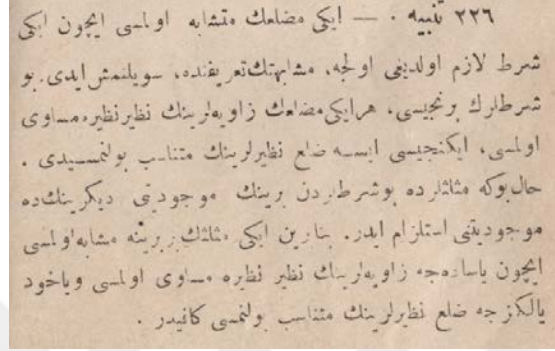 ٢٢٦ تنبيه . — ايكى مضلعك متشابه اولمسى ايچون ايكى
شرط لازم اولديغى اولجه، مشابهتك تعريفنده، سويلنمش ايدى. بو
شرطلرك برنجيسى، هر ايكى مضلعك زاويه‌لرينك نظير نظيره مساوى
اولمسى، ايكنجيسى ايسه ضلع نظيرلرينك متناسب بولنمسيدى .
حال بوكه مثلثلرده بو شرطلردن برينك موجوديتى ديكرينك‌ده
موجوديتنى استلزام ايدر. بنابرين ايكى مثلثك بربرينه مشابه اولمسى
ايچون يا ساده‌جه زاويه‌لرينك نظير نظيره مساوى اولمسى وياخود
يالكزجه ضلع نظيرلرينك متناسب بولنمسى كافيدر .